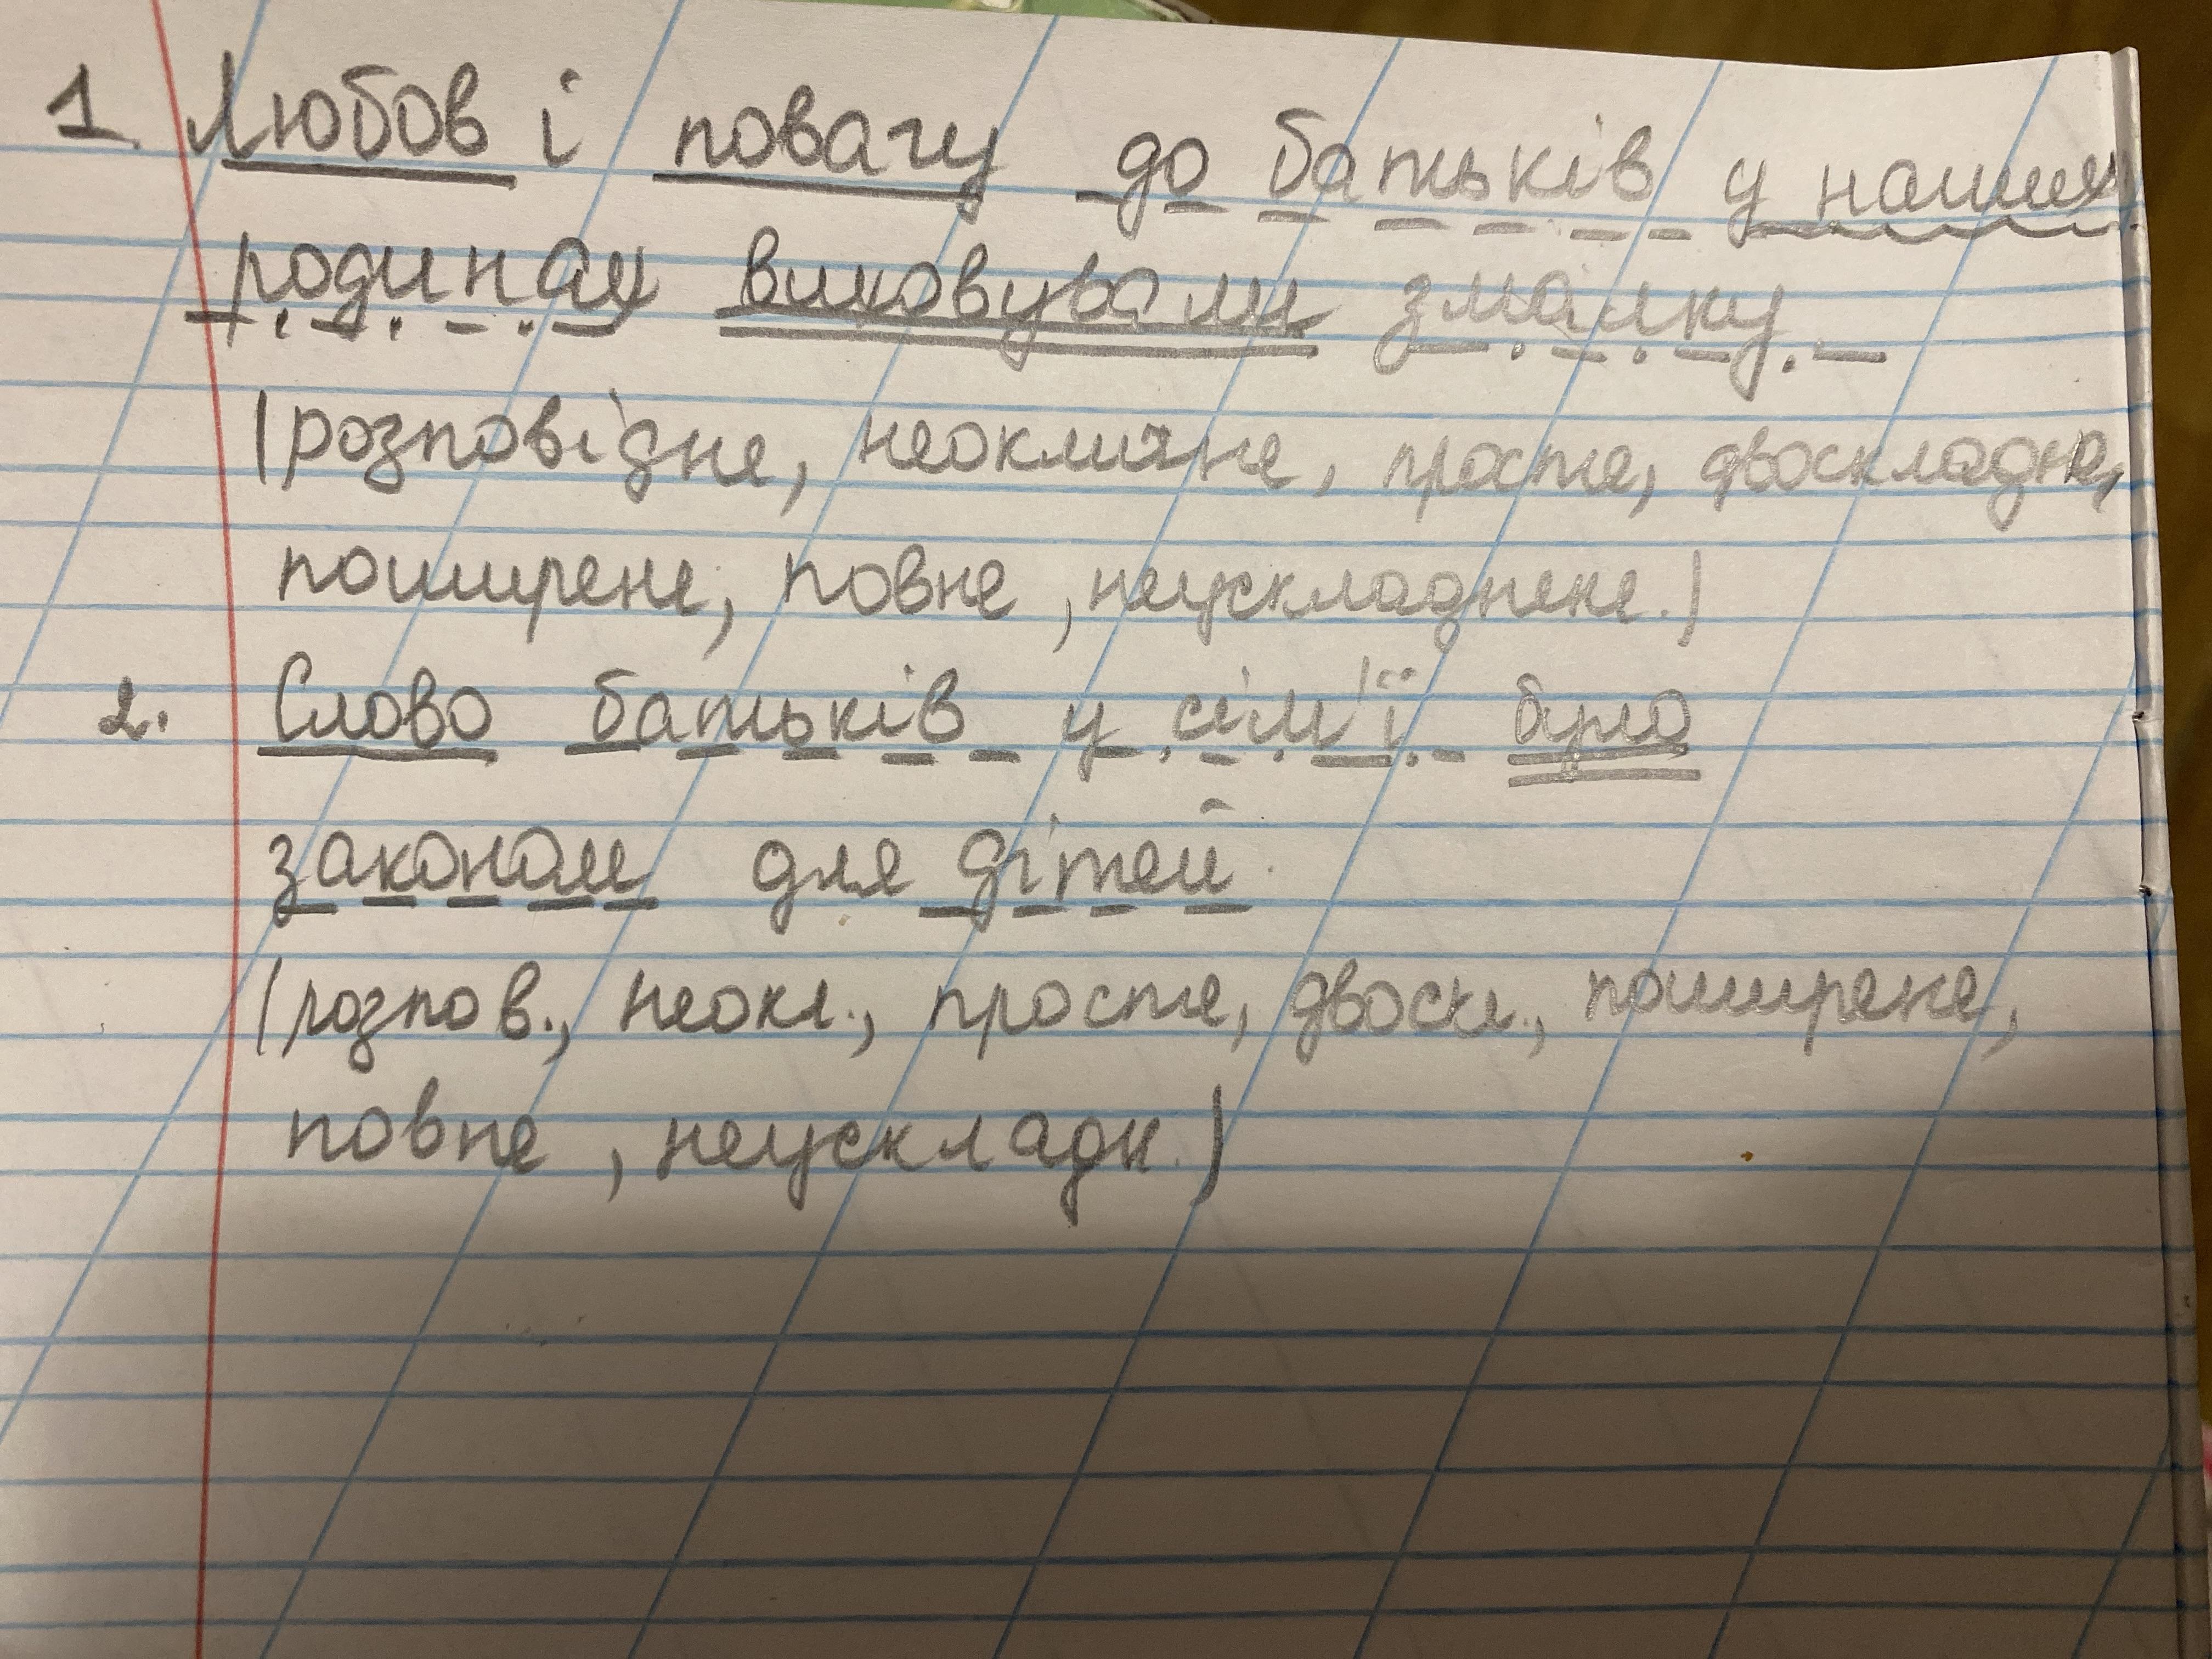 1. Любов і повагу до батьків у наших
родинах виховували змалку.
(розповідне, неокличне, просте, двоскладне,
поширене, повне, неускладнене.)
2. Слово батьків у сім'ї було
законом для дітей.
(розпов., неокл., просте, двоскл., поширене,
повне, неускладн.)